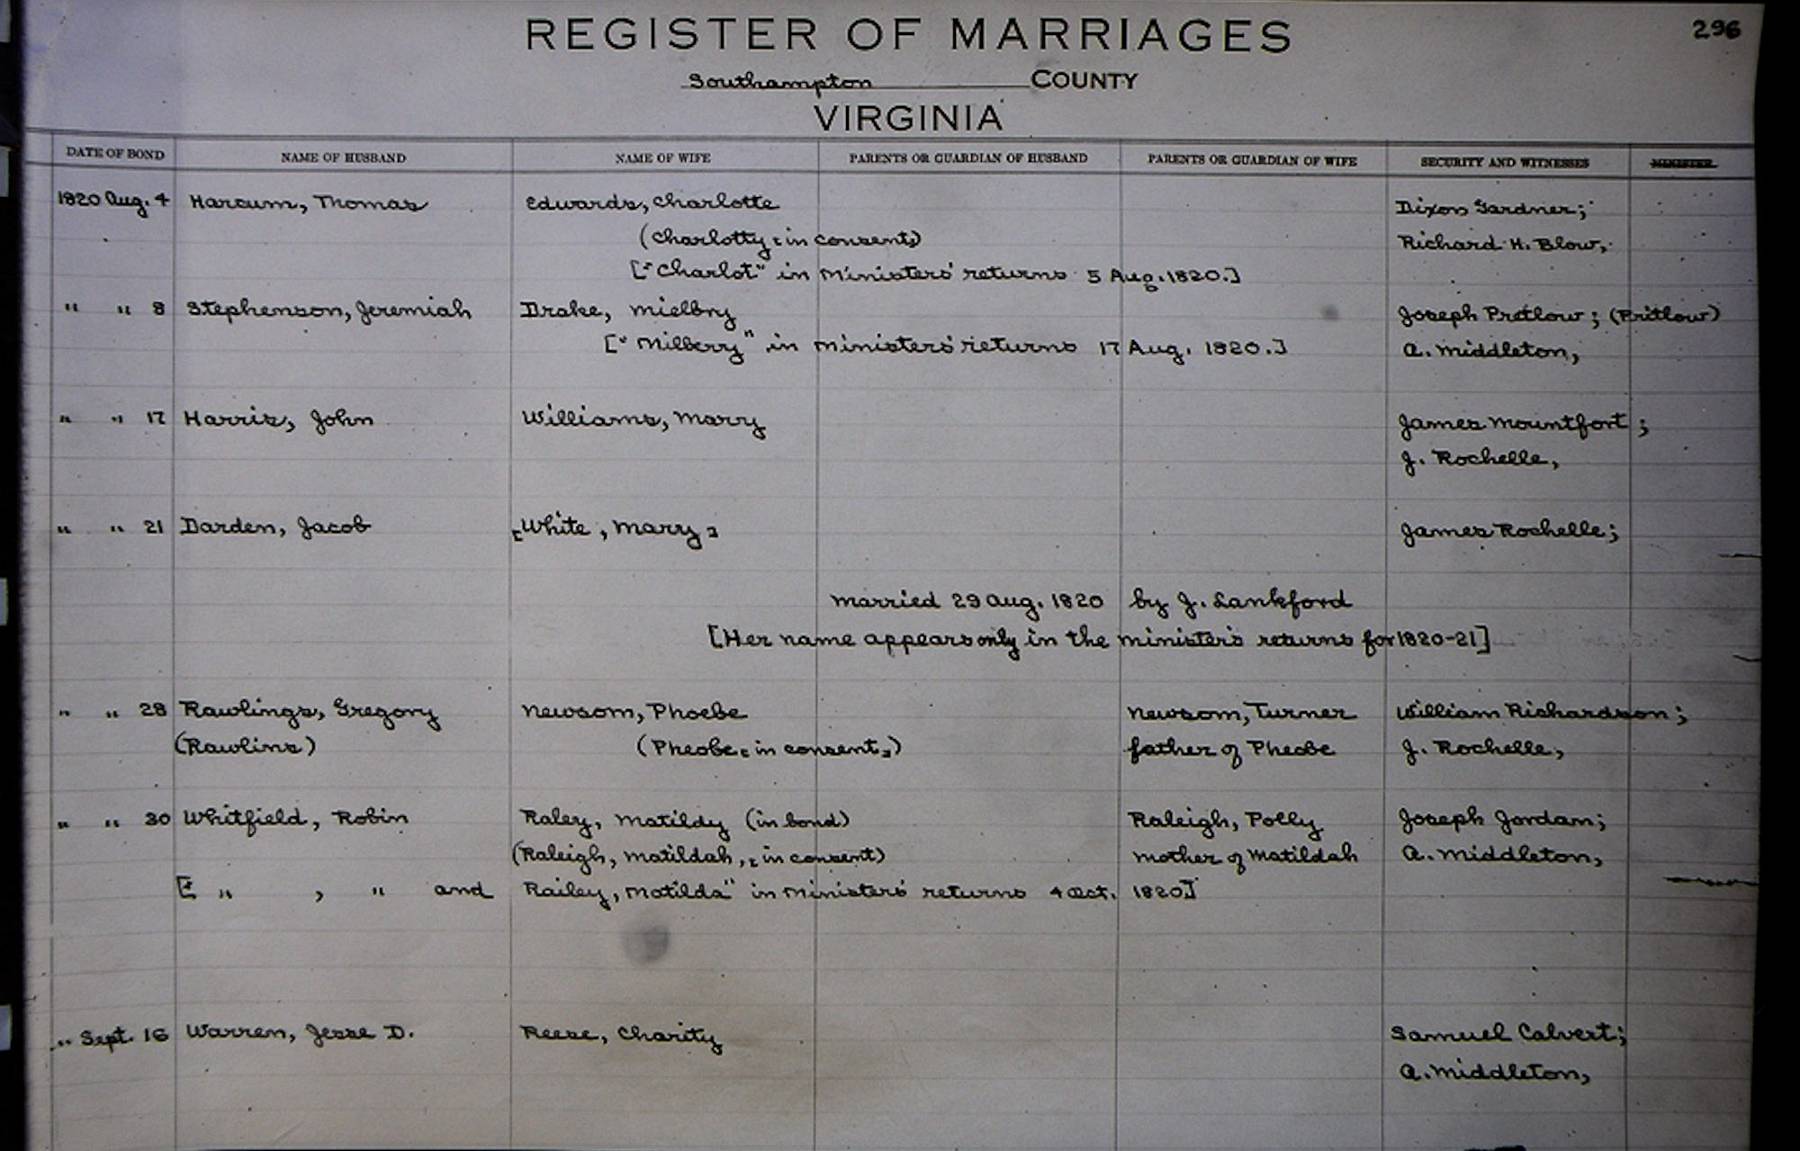 REGISTER OF MARRIAGES
296
Southampton COUNTY
VIRGINIA
DATE OF BOND NAME OF HUSBAND NAME OF WIFE PARENTS OR GUARDIAN OF HUSBAND PARENTS OR GUARDIAN OF WIFE SECURITY AND WITNESSES MINISTER
1820 Aug. 4 Harcum, Thomas Edwards, Charlotte Dixon Gardner;
(Charlotty [in consent]) Richard H. Blow,
["Charlot" in Ministers' returns 5 Aug. 1820.]
" " 8 Stephenson, Jeremiah Drake, Mielbry Joseph Pretlow; (Pritlow)
["Milberry" in Ministers' returns 17 Aug. 1820.] A. Middleton,
" " 17 Harris, John Williams, Mary James Mountfort;
J. Rochelle,
" " 21 Darden, Jacob [White, Mary] James Rochelle;
married 29 Aug. 1820 by J. Lankford
[Her name appears only in the minister's returns for 1820-21]
" " 28 Rawlings, Gregory Newsom, Phoebe Newsom, Turner William Richardson;
(Rawlins) (Pheobe [in consent]) father of Pheobe J. Rochelle,
" " 30 Whitfield, Robin Raley, Matildy (in bond) Raleigh, Polly Joseph Jordan;
(Raleigh, Matildah, [in consent) mother of Matildah A. Middleton,
[" " , " and Railey, Matilda" in Ministers' returns 4 Oct. 1820]
" Sept. 16 Warren, Jesse D. Reese, Charity Samuel Calvert;
A. Middleton,